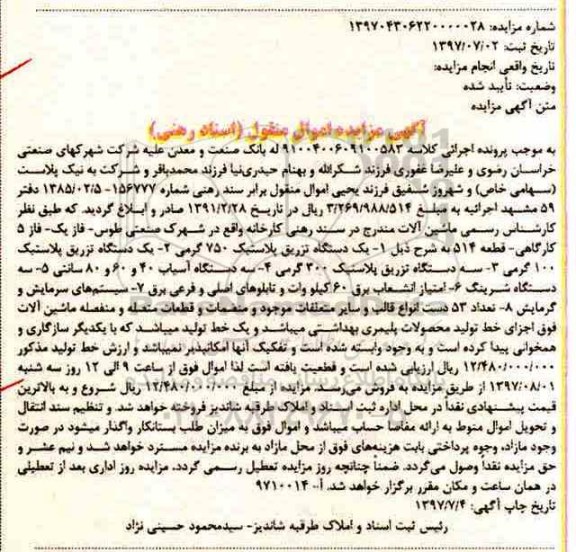 شماره مزایده: ۱۳۹۷۰۴۳۰۶۲۲۰۰۰۰۰۲۸
تاریخ ثبت: ۱۳۹۷/۰۷/۰۲
تاریخ واقعی انجام مزایده:
وضعیت: تأیید شده
متن آگهی مزایده
آگهی مزایده اموال منقول (اسناد رهنی)
به موجب پرونده اجرائی کلاسه ۹۱۰۰۴۰۰۶۰۹۱۰۰۵۸۳ له بانک صنعت و معدن علیه شرکت شهرکهای صنعتی
خراسان رضوی و علیرضا غفوری فرزند شکرالله و بهنام حیدری‌نیا فرزند محمدباقر و شرکت به نیک پلاست
(سهامی خاص) و شهروز شفیق فرزند یحیی اموال منقول برابر سند رهنی شماره ۱۵۶۷۷۷- ۱۳۸۵/۰۲/۵ دفتر
۵۹ مشهد اجرائیه به مبلغ ۳/۲۶۹/۹۸۸/۵۱۴ ریال در تاریخ ۱۳۹۱/۲/۲۸ صادر و ابلاغ گردید. که طبق نظر
کارشناس رسمی ماشین آلات مندرج در سند رهنی کارخانه واقع در شهرک صنعتی طوس- فاز یک- فاز ۵
کارگاهی- قطعه ۵۱۴ به شرح ذیل ۱- یک دستگاه تزریق پلاستیک ۷۵۰ گرمی ۲- یک دستگاه تزریق پلاستیک
۱۰۰ گرمی ۳- سه دستگاه تزریق پلاستیک ۳۰۰ گرمی ۴- سه دستگاه آسیاب ۴۰ و ۶۰ و ۸۰ سانتی ۵- سه
دستگاه شرینگ ۶- امتیاز انشعاب برق ۶۰ کیلو وات و تابلوهای اصلی و فرعی برق ۷- سیستم‌های سرمایش و
گرمایش ۸- تعداد ۵۳ دست انواع قالب و سایر متعلقات موجود و منضمات و قطعات متصله و منفصله ماشین آلات
فوق اجزای خط تولید محصولات پلیمری بهداشتی میباشد و یک خط تولید میباشد که با یکدیگر سازگاری و
همخوانی پیدا کرده است و به وجود وابسته شده است و تفکیک آنها امکانپذیر نمیباشد و ارزش خط تولید مذکور
۱۲/۴۸۰/۰۰۰/۰۰۰ ریال ارزیابی شده است و قطعیت یافته است لذا اموال فوق از ساعت ۹ الی ۱۲ روز سه شنبه
۱۳۹۷/۰۸/۰۱ از طریق مزایده به فروش می‌رسد. مزایده از مبلغ ۱۲/۴۸۰/۰۰۰/۰۰۰ ریال شروع و به بالاترین
قیمت پیشنهادی نقداً در محل اداره ثبت اسناد و املاک طرقبه شاندیز فروخته خواهد شد. و تنظیم سند انتقال
و تحویل اموال منوط به ارائه مفاصا حساب میباشد و اموال فوق به میزان طلب بستانکار واگذار میشود در صورت
وجود مازاد، وجوه پرداختی بابت هزینه‌های فوق از محل مازاد به برنده مزایده مسترد خواهد شد و نیم عشر و
حق مزایده نقدا وصول می‌گردد. ضمناً چنانچه روز مزایده تعطیل رسمی گردد، مزایده روز اداری بعد از تعطیلی
در همان ساعت و مکان مقرر برگزار خواهد شد. آ- ۹۷۱۰۰۱۴
تاریخ چاپ آگهی: ۱۳۹۷/۷/۴
رئیس ثبت اسناد و املاک طرقبه شاندیز- سیدمحمود حسینی نژاد